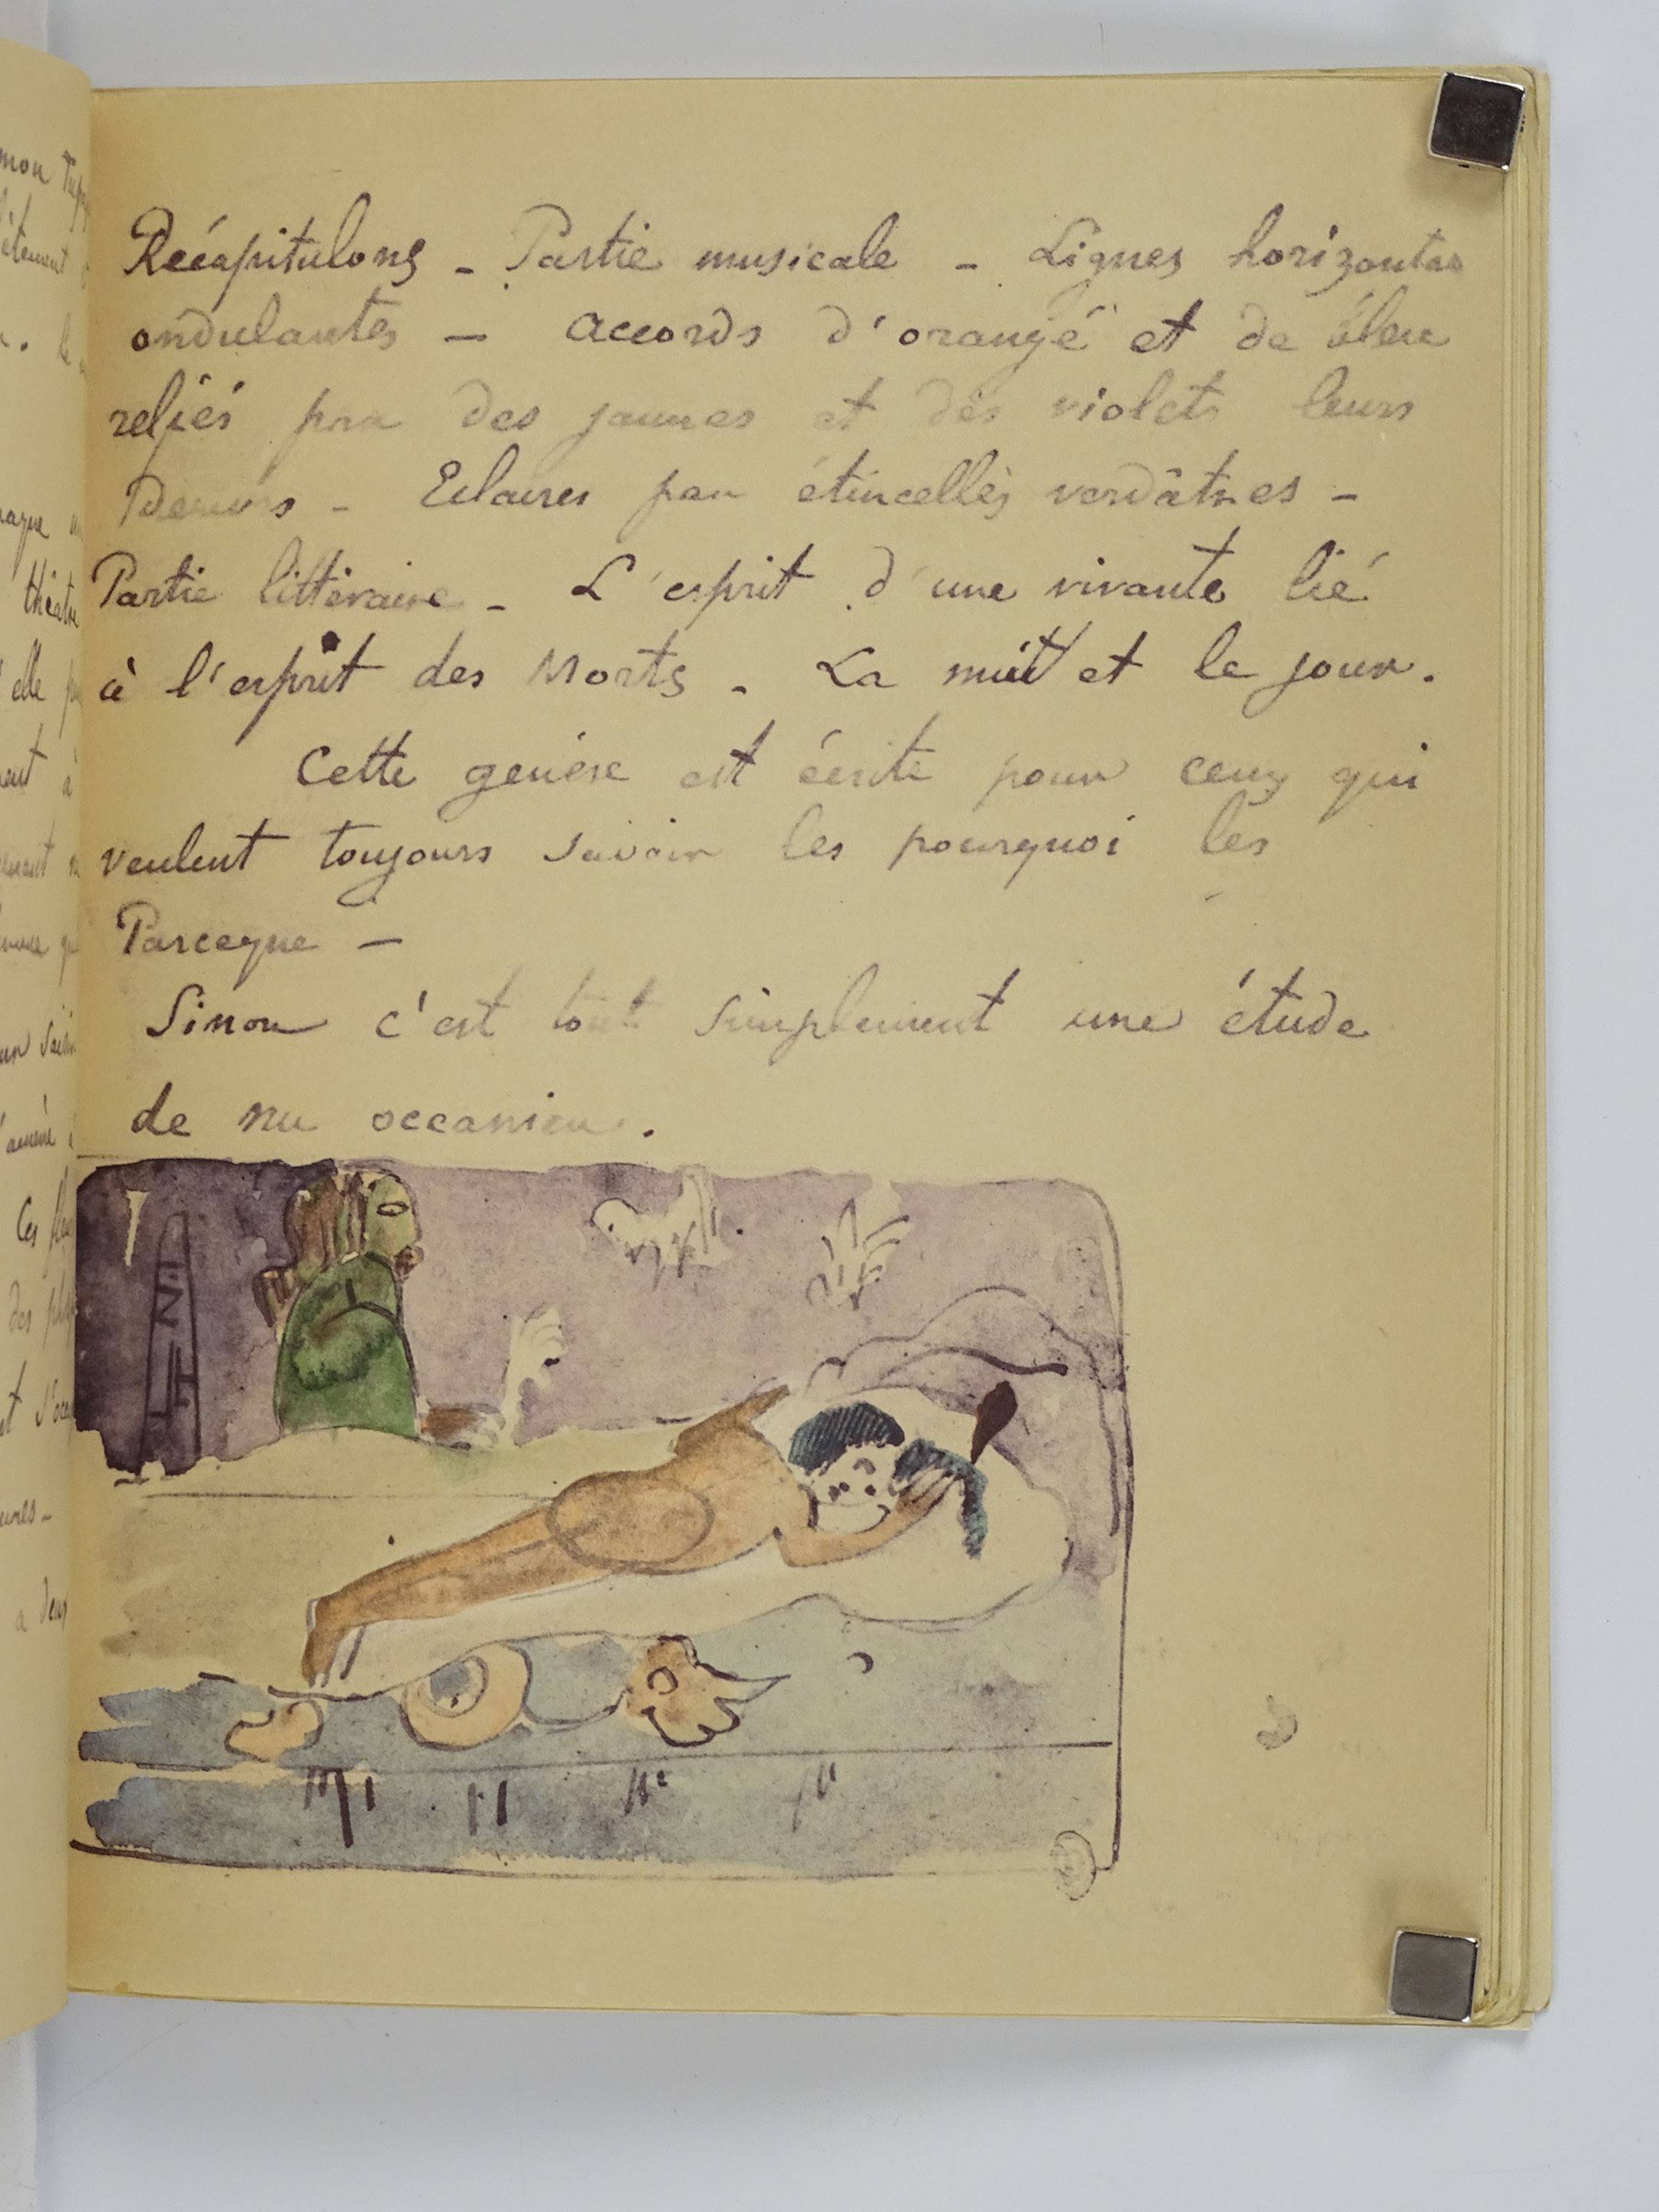 Récapitulons - Partie musicale - Lignes horizontales
ondulantes - accords d'orangé et de bleu
reliés par des jaunes et des violets leurs
Derivés - Eclairés par étincelles verdâtres -
Partie littéraire - L'esprit d'une vivante lié
à l'esprit des Morts - La nuit et le jour.
Cette genèse est écrite pour ceux qui
veulent toujours savoir les pourquoi les
Parceque -
Sinon c'est tout simplement une étude
de nu océanien.
mon
théatre
elle
à
Ces
des